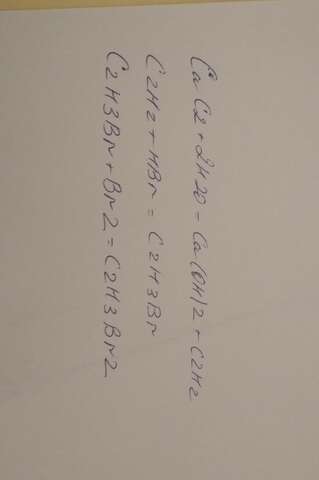 CaC2+2H2O=Ca(OH)2+C2H2
C2H2+HBr=C2H3Br
C2H3Br+Br2=C2H3Br2